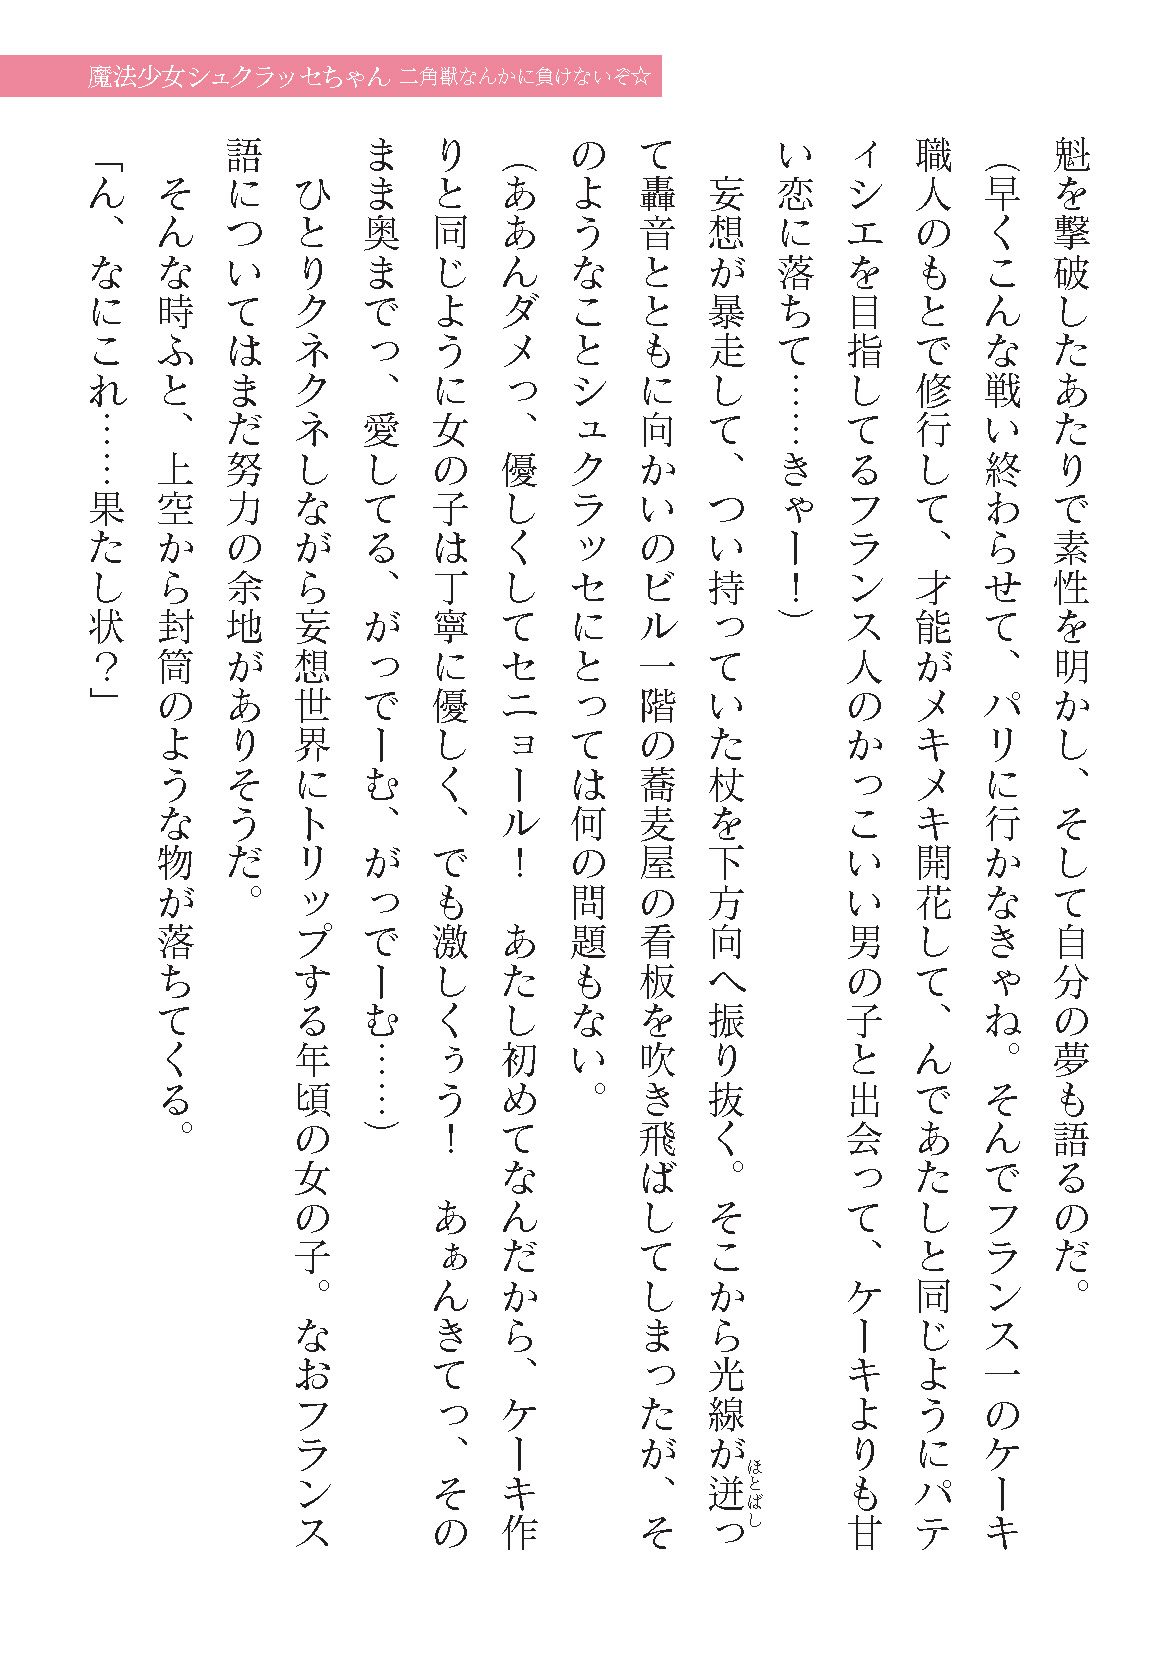 魔法少女シュクラッセちゃん 二角獣なんかに負けないぞ☆
魁を撃破したあたりで素性を明かし、そして自分の夢も語るのだ。
（早くこんな戦い終わらせて、パリに行かなきゃね。そんでフランス一のケーキ
職人のもとで修行して、才能がメキメキ開花して、んであたしと同じようにパテ
ィシエを目指してるフランス人のかっこいい男の子と出会って、ケーキよりも甘
い恋に落ちて……きゃー！）
妄想が暴走して、つい持っていた杖を下方向へ振り抜く。そこから光線が迸っ
ほとばし
て轟音とともに向かいのビル一階の蕎麦屋の看板を吹き飛ばしてしまったが、そ
のようなことシュクラッセにとっては何の問題もない。
（ああんダメっ、優しくしてセニョール！　あたし初めてなんだから、ケーキ作
りと同じように女の子は丁寧に優しく、でも激しくぅう！　あぁんきてっ、その
まま奥までっ、愛してる、がっでーむ、がっでーむ……）
ひとりクネクネしながら妄想世界にトリップする年頃の女の子。なおフランス
語についてはまだ努力の余地がありそうだ。
そんな時ふと、上空から封筒のような物が落ちてくる。
「ん、なにこれ……果たし状？」